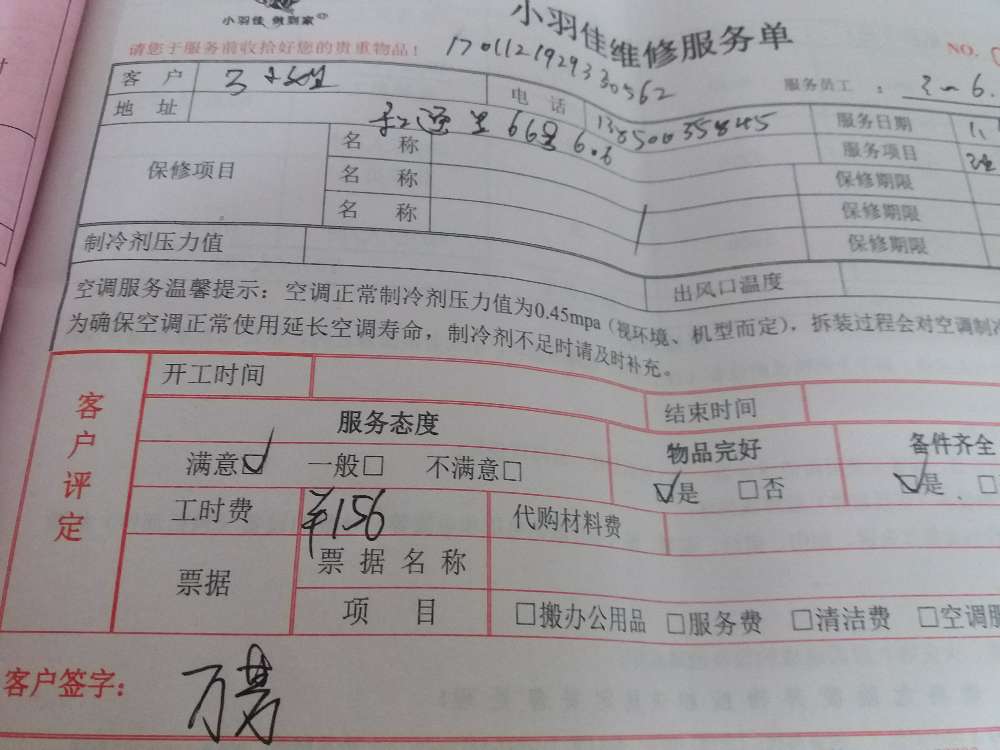 小羽佳 做到家
小羽佳维修服务单
请您于服务前收拾好您的贵重物品!
1701121929330562
NO.
客 户
电 话
13850035845
服务员工 :
地 址
66号606
服务日期
保修项目
名 称
服务项目
名 称
保修期限
名 称
保修期限
保修期限
制冷剂压力值
出风口温度
空调服务温馨提示:空调正常制冷剂压力值为0.45mpa(视环境、机型而定),拆装过程会对空调制
为确保空调正常使用延长空调寿命,制冷剂不足时请及时补充。
客户评定
开工时间
结束时间
服务态度
物品完好
备件齐全
满意☑ 一般□ 不满意□
☑是 □否
☑是 □
工时费
¥156
代购材料费
票据
票据名称
项 目
□搬办公用品 □服务费 □清洁费 □空调服
客户签字: